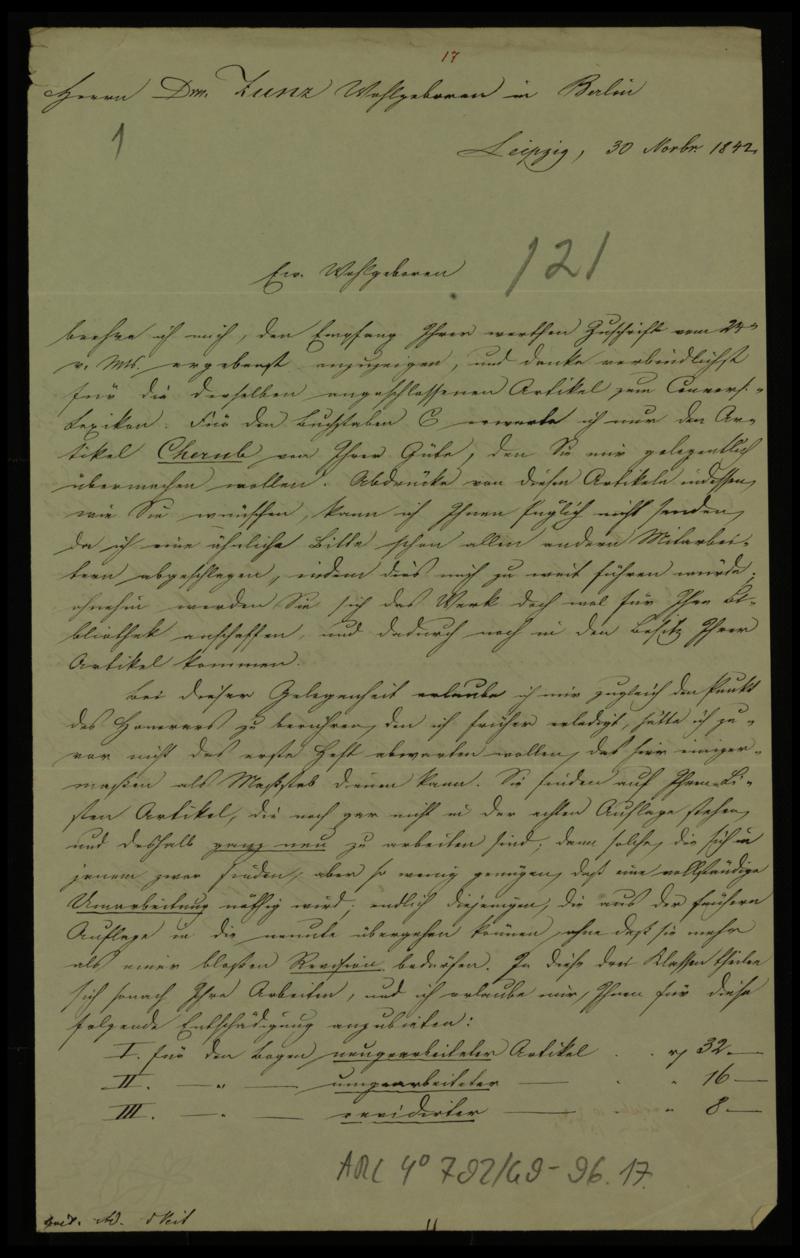 17
Herrn Dr. Zunz Wohlgeboren in Berlin
1
Leipzig, 30 Novbr. 1842.
Ew. Wohlgeboren
121
beehre ich mich, den Empfang Ihrer werthen Zuschrift vom
v. Mts. ergebenst anzuzeigen, und danke verbindlichst
für die derselben angeschlossenen Artikel zum Convers.-
Lexikon. Für den Buchstaben C erwarte ich nur den Ar-
tikel Cherub von Ihrer Güte, den Sie mir gelegentlich
übermachen wollen. Abdrücke von diesen Artikeln indessen,
wie Sie wünschen, kann ich Ihnen füglich nicht senden,
da ich eine ähnliche Bitte schon allen andern Mitarbei-
tern abgeschlagen, indem dies mich zu weit führen würde;
ohnehin werden Sie sich das Werk doch wol für Ihre Bi-
bliothek anschaffen, und dadurch noch in den Besitz Ihrer
Artikel kommen.
Bei dieser Gelegenheit erlaube ich mir zugleich den Punkt
des Honorars zu berühren, den ich früher erledigt, hätte ich zu-
vor nicht das erste Heft abwarten wollen, das hier einiger-
maßen als Maßstab dienen kann. Sie finden auf Ihren Li-
sten Artikel, die noch gar nicht in der achten Auflage stehen,
und deshalb ganz neu zu arbeiten sind; dann solche, die sich in
jenem zwar finden, aber so wenig genügen, daß eine vollständige
Umarbeitung nöthig wird; endlich diejenigen, die aus der frühern
Auflage in die neunte übergehen können, ohne daß sie mehr
als einer bloßen Revision bedürfen. In diese drei Klassen theilen
sich sonach Ihre Arbeiten, und ich erlaube mir, Ihnen für diese
folgende Entschädigung anzubieten:
I. für den Bogen neugearbeiteter Artikel . . 32.—
II. — " — umgearbeiteter — . " 16 —
III. — " — revidirter — " 8 —
ARC 4° 792/G9-96.17